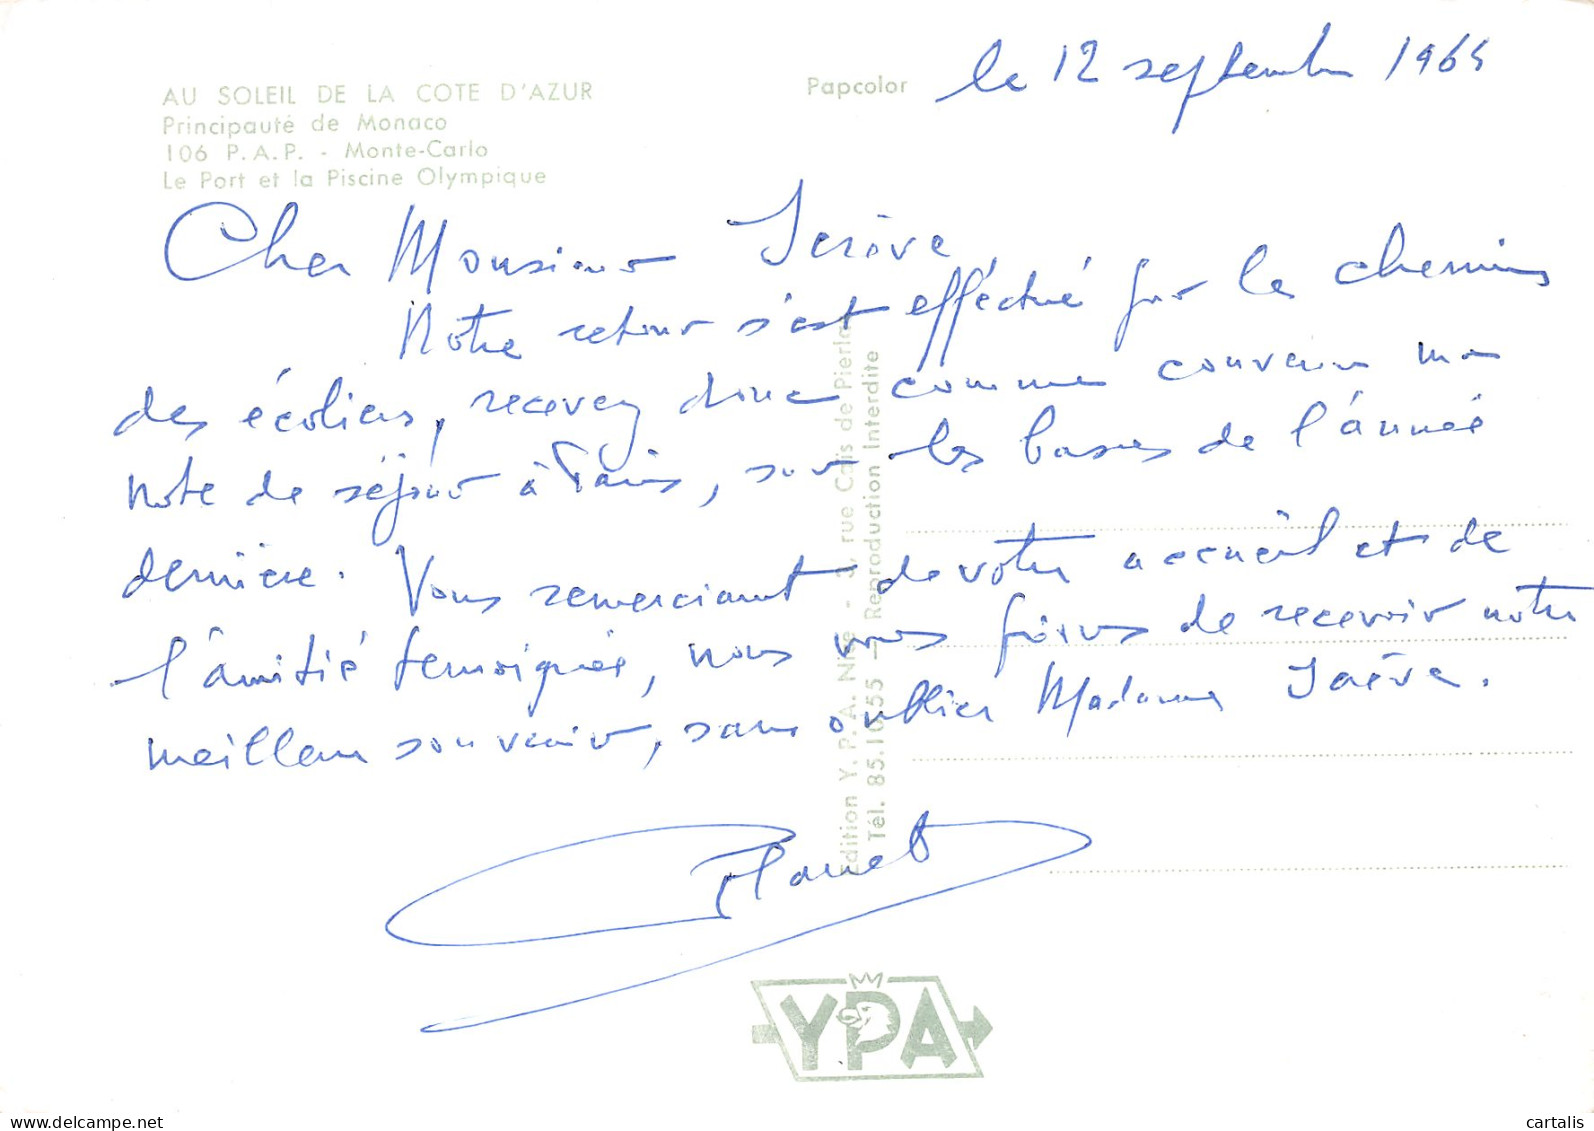 le 12 septembre 196
AU SOLEIL DE LA COTE D'AZUR
Papcolor
Principauté de Monaco
106 P.A.P. - Monte-Carlo
Le Port et la Piscine Olympique
Cher Monsieur
Notre retour s'est effectué par le chemin
des écoliers, recevez donc comme convenu ma
note de séjour à Paris, sur les bases de l'année
dernière. Vous remerciant de votre accueil et de
l'amitié temoignée, nous vous prions de recevoir notre
meilleur souvenir, sans oublier Madame
Planet
Edition Y.P.A. Nice - 3, rue Caïs de Pierlas
Tél. 85.10.55 - Reproduction Interdite
YPA